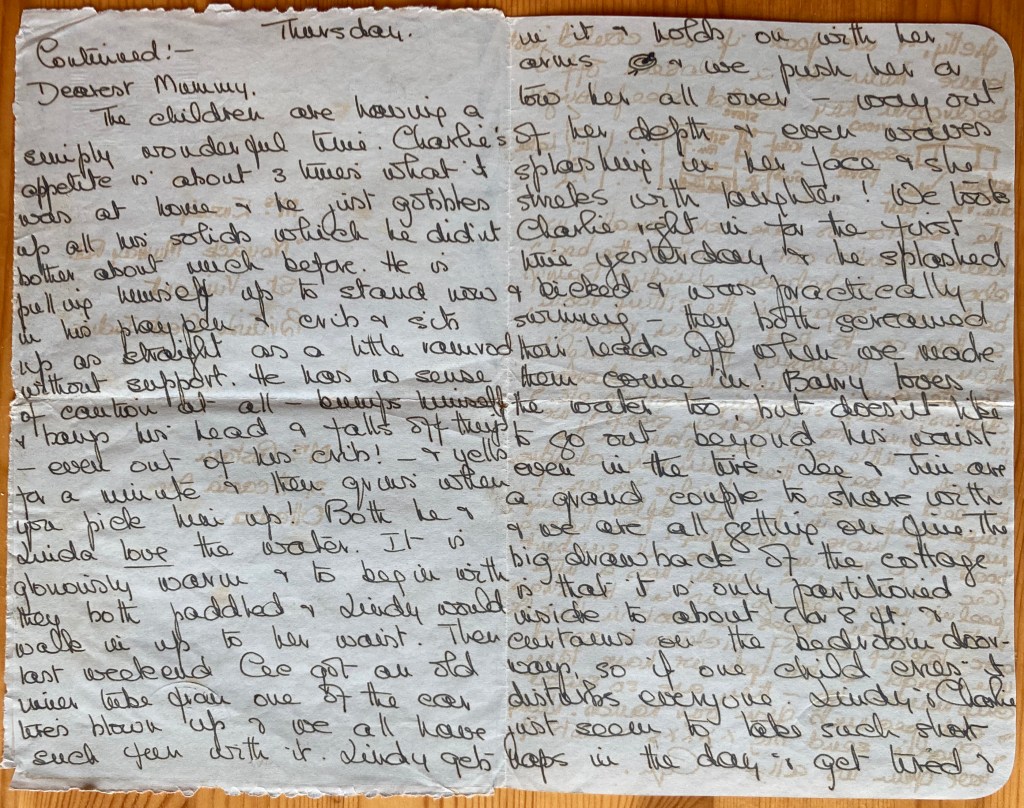 Thursday.
Continued:-
Dearest Mummy.
The children are having a
simply wonderful time. Charlie's
appetite is about 3 times what it
was at home & he just gobbles
up all his solids which he didn't
bother about much before. He is
pulling himself up to stand now
in his playpen & crib & sits
up as straight as a little ramrod
without support. He has no sense
of caution at all - bumps himself
& bangs his head & falls off things
- even out of his crib! - & yells
for a minute & then grins when
you pick him up! Both he &
Linda love the water. It is
gloriously warm & to begin with
they both paddled & Lindy would
walk in up to her waist. Then
last weekend Cec got an old
inner tube from one of the car
tires blown up & we all have
such fun with it. Lindy gets
in it & holds on with her
arms & we push her or
tow her all over - way out
of her depth & even waves
splashing in her face & she
shrieks with laughter! We took
Charlie right in for the first
time yesterday & he splashed
& kicked & was practically
swimming - they both screamed
their heads off when we made
them come in! Barry loves
the water too, but doesn't like
to go out beyond his waist
even in the tire. Lee & Jim are
a grand couple to share with
& we are all getting on fine. The
big drawback of the cottage
is that it is only partitioned
inside to about 7 or 8 ft. &
curtains on the bedroom door-
ways, so if one child cries it
disturbs everyone. Lindy & Charlie
just seem to take such short
naps in the day & get tired &